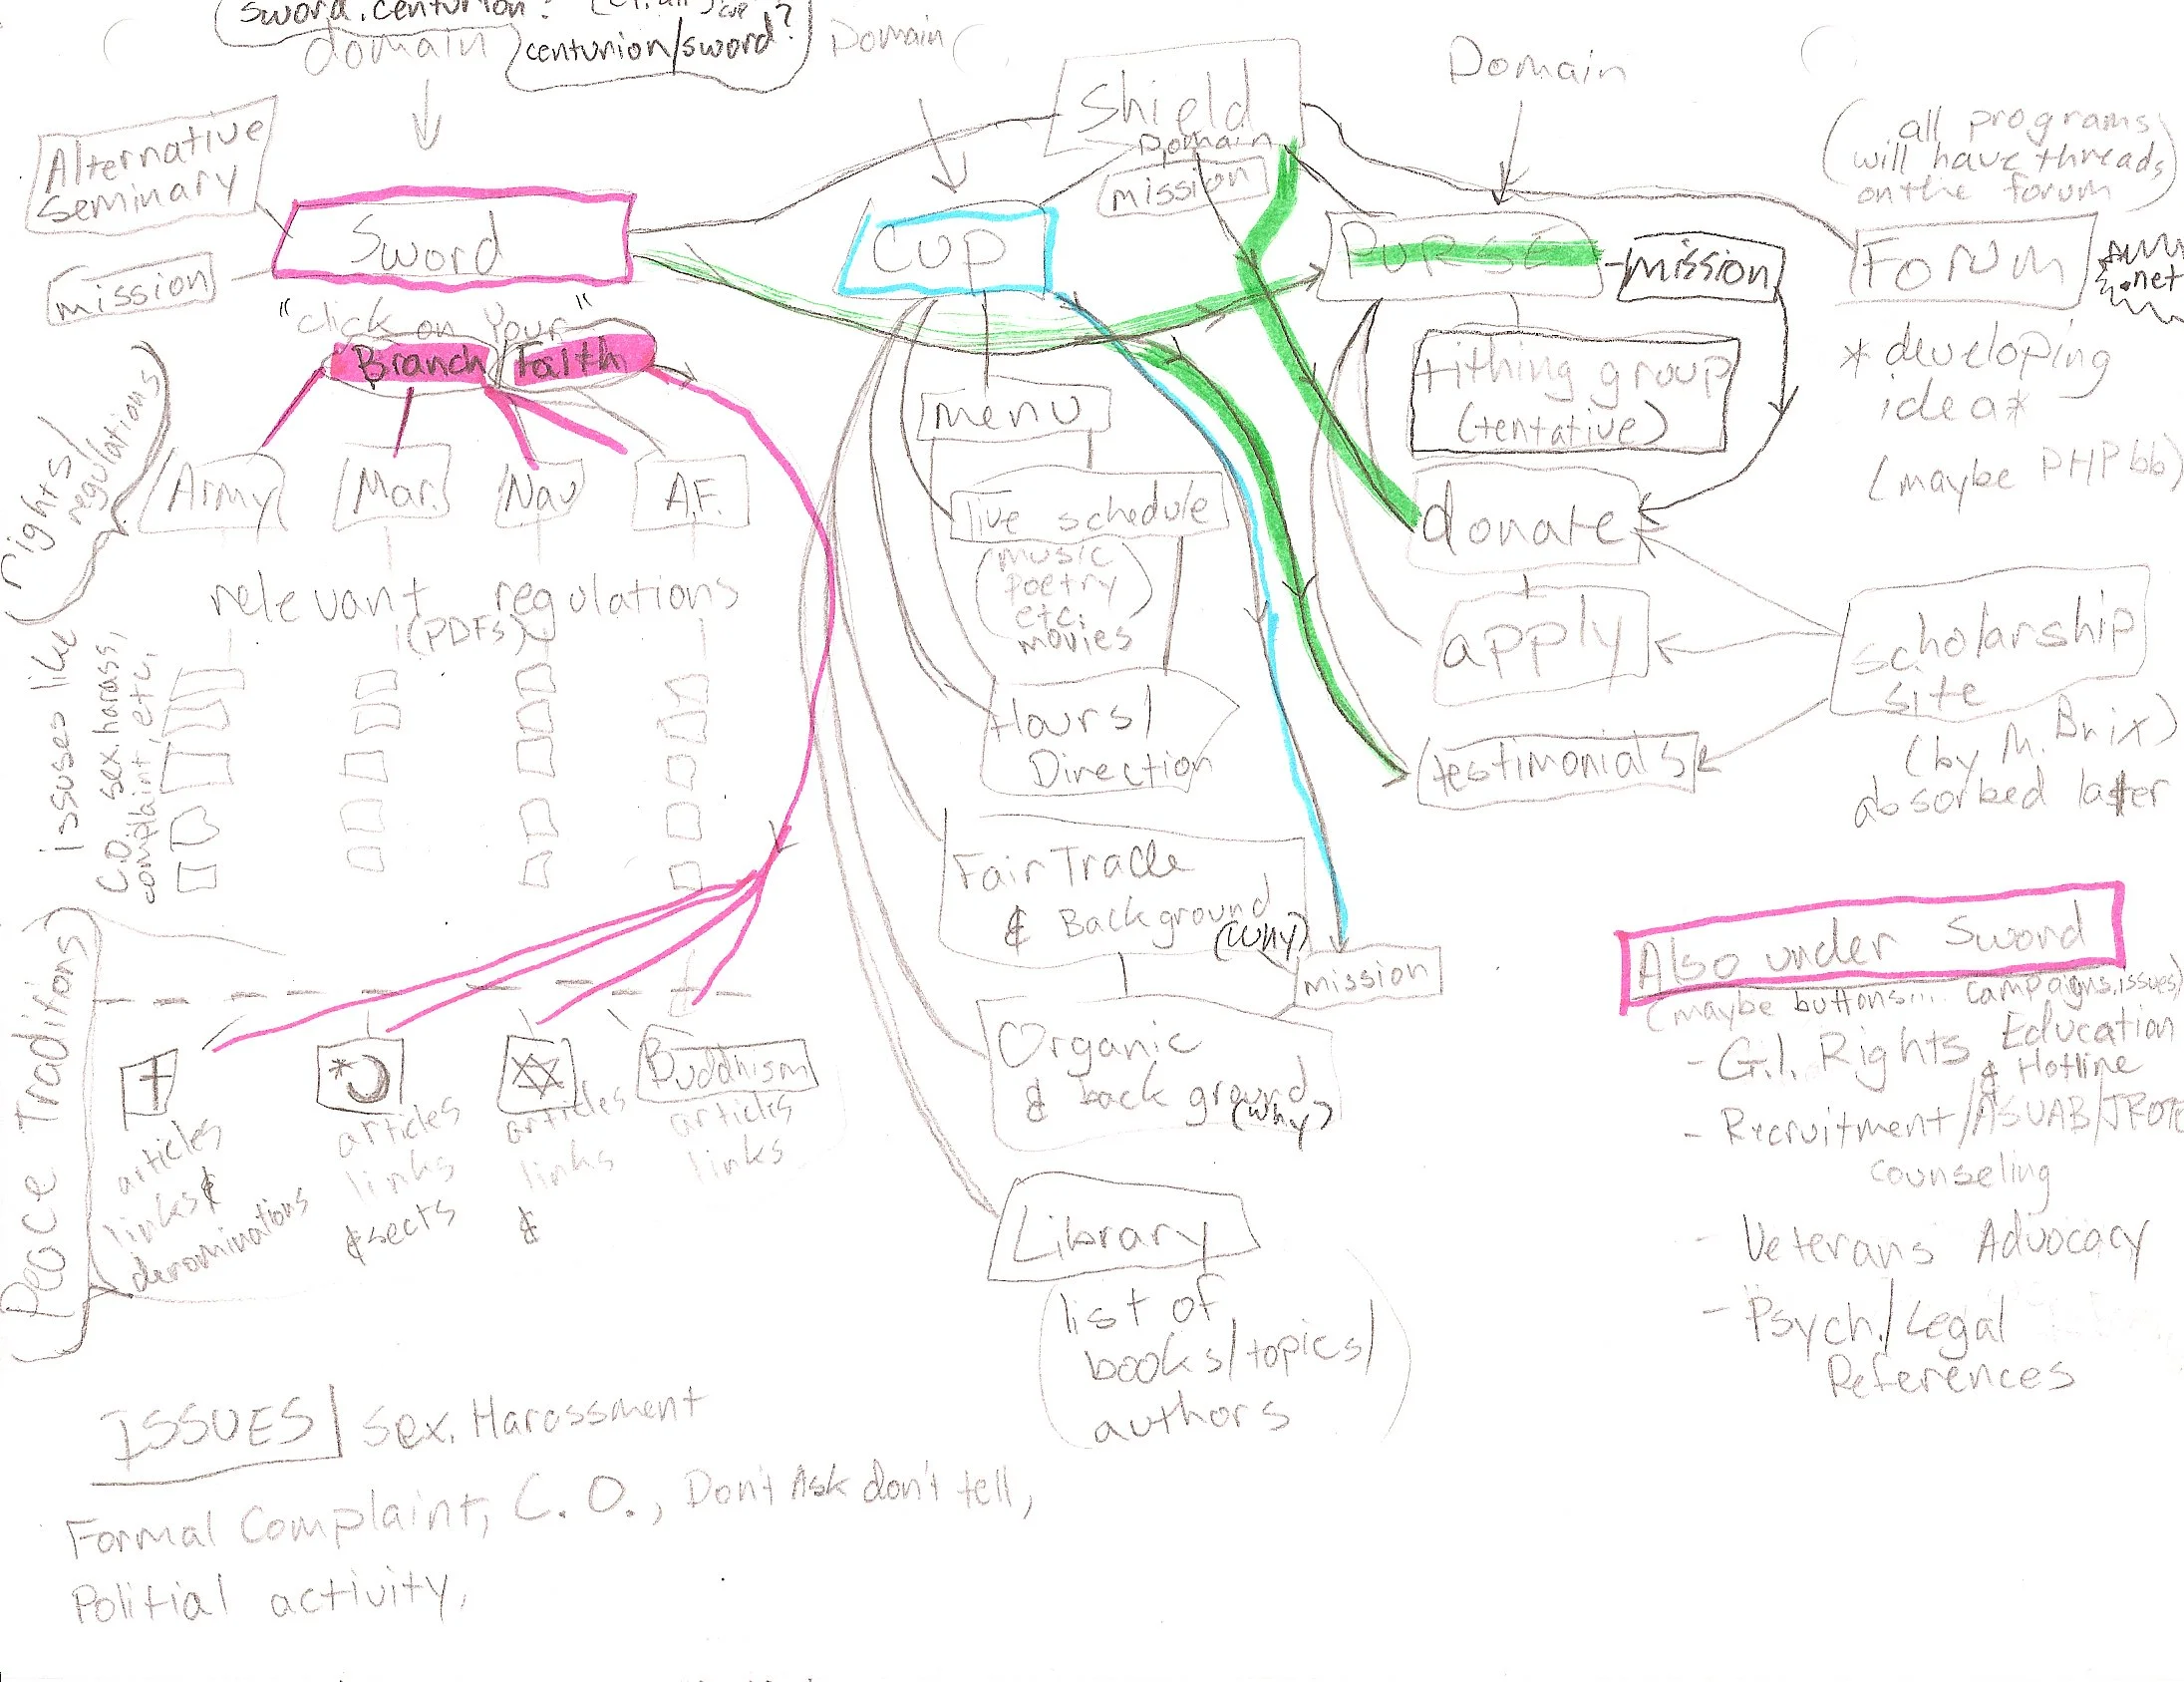 sword.centurion?
domain
centurion/sword?
Domain
Shield
Domain
mission
Domain
(all programs
will have threads
on the forum
Alternative
Seminary
mission
Sword
Cup
PURSE
mission
Forum
.net
"click on your"
Branch
Faith
rights/
regulations
Army
Mar.
Nav
A.F.
relevant regulations
(PDFs)
issues like
C.O. sex. harass,
complaint, etc,
menu
live schedule
(music
poetry
etc.
movies
Hours/
Direction
Fair Trade
& Background
(why)
mission
Organic
& back ground
(why)
Library
(list of
books/topics/
authors
tithing group
(tentative)
donate
apply
testimonials
*developing
idea*
(maybe PHPbb)
scholarship
site
(by M. Brix)
absorbed later
Peace Traditions
articles
links &
denominations
articles
links
& sects
articles
links
&
Buddhism
articles
links
Also under Sword
(maybe buttons... campaigns, issues)
- G.I. Rights Education
& Hotline
- Recruitment/ASVAB/JROTC
counseling
- Veterans Advocacy
- Psych./Legal
References
ISSUES| Sex. Harassment
Formal Complaint, C.O., Don't Ask don't tell,
Politial activity,